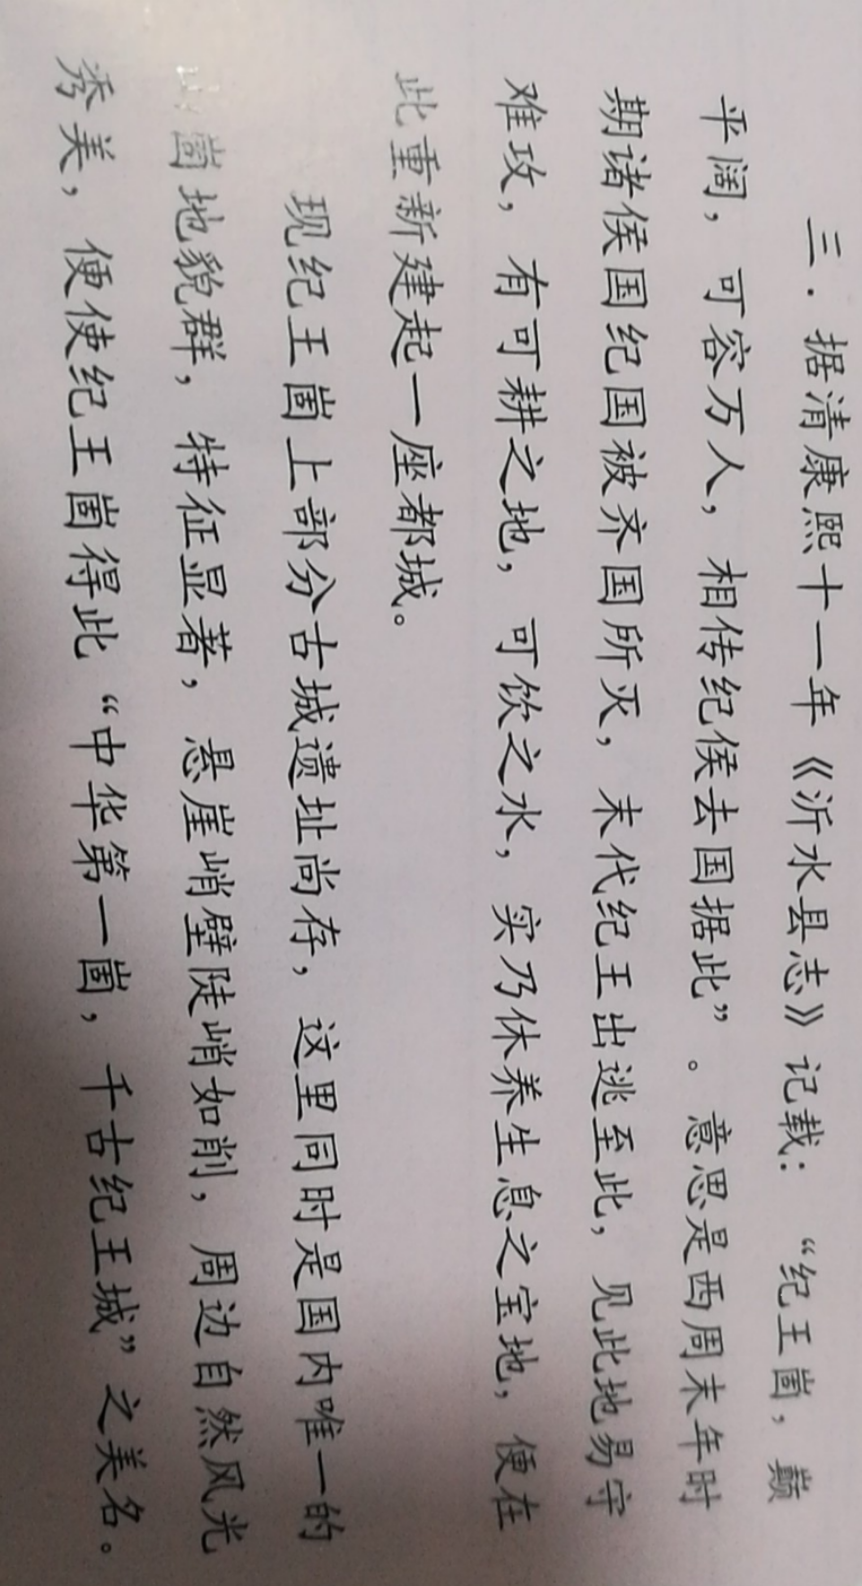 三．据清康熙十一年《沂水县志》记载：“纪王崮，巅
平阔，可容万人，相传纪侯去国据此”。意思是西周末年时
期诸侯国纪国被齐国所灭，末代纪王出逃至此，见此地易守
难攻，有可耕之地，可饮之水，实乃休养生息之宝地，便在
此重新建起一座都城。
现纪王崮上部分古城遗址尚存，这里同时是国内唯一的
崮地貌群，特征显著，悬崖峭壁陡峭如削，周边自然风光
秀美，便使纪王崮得此“中华第一崮，千古纪王城”之美名。